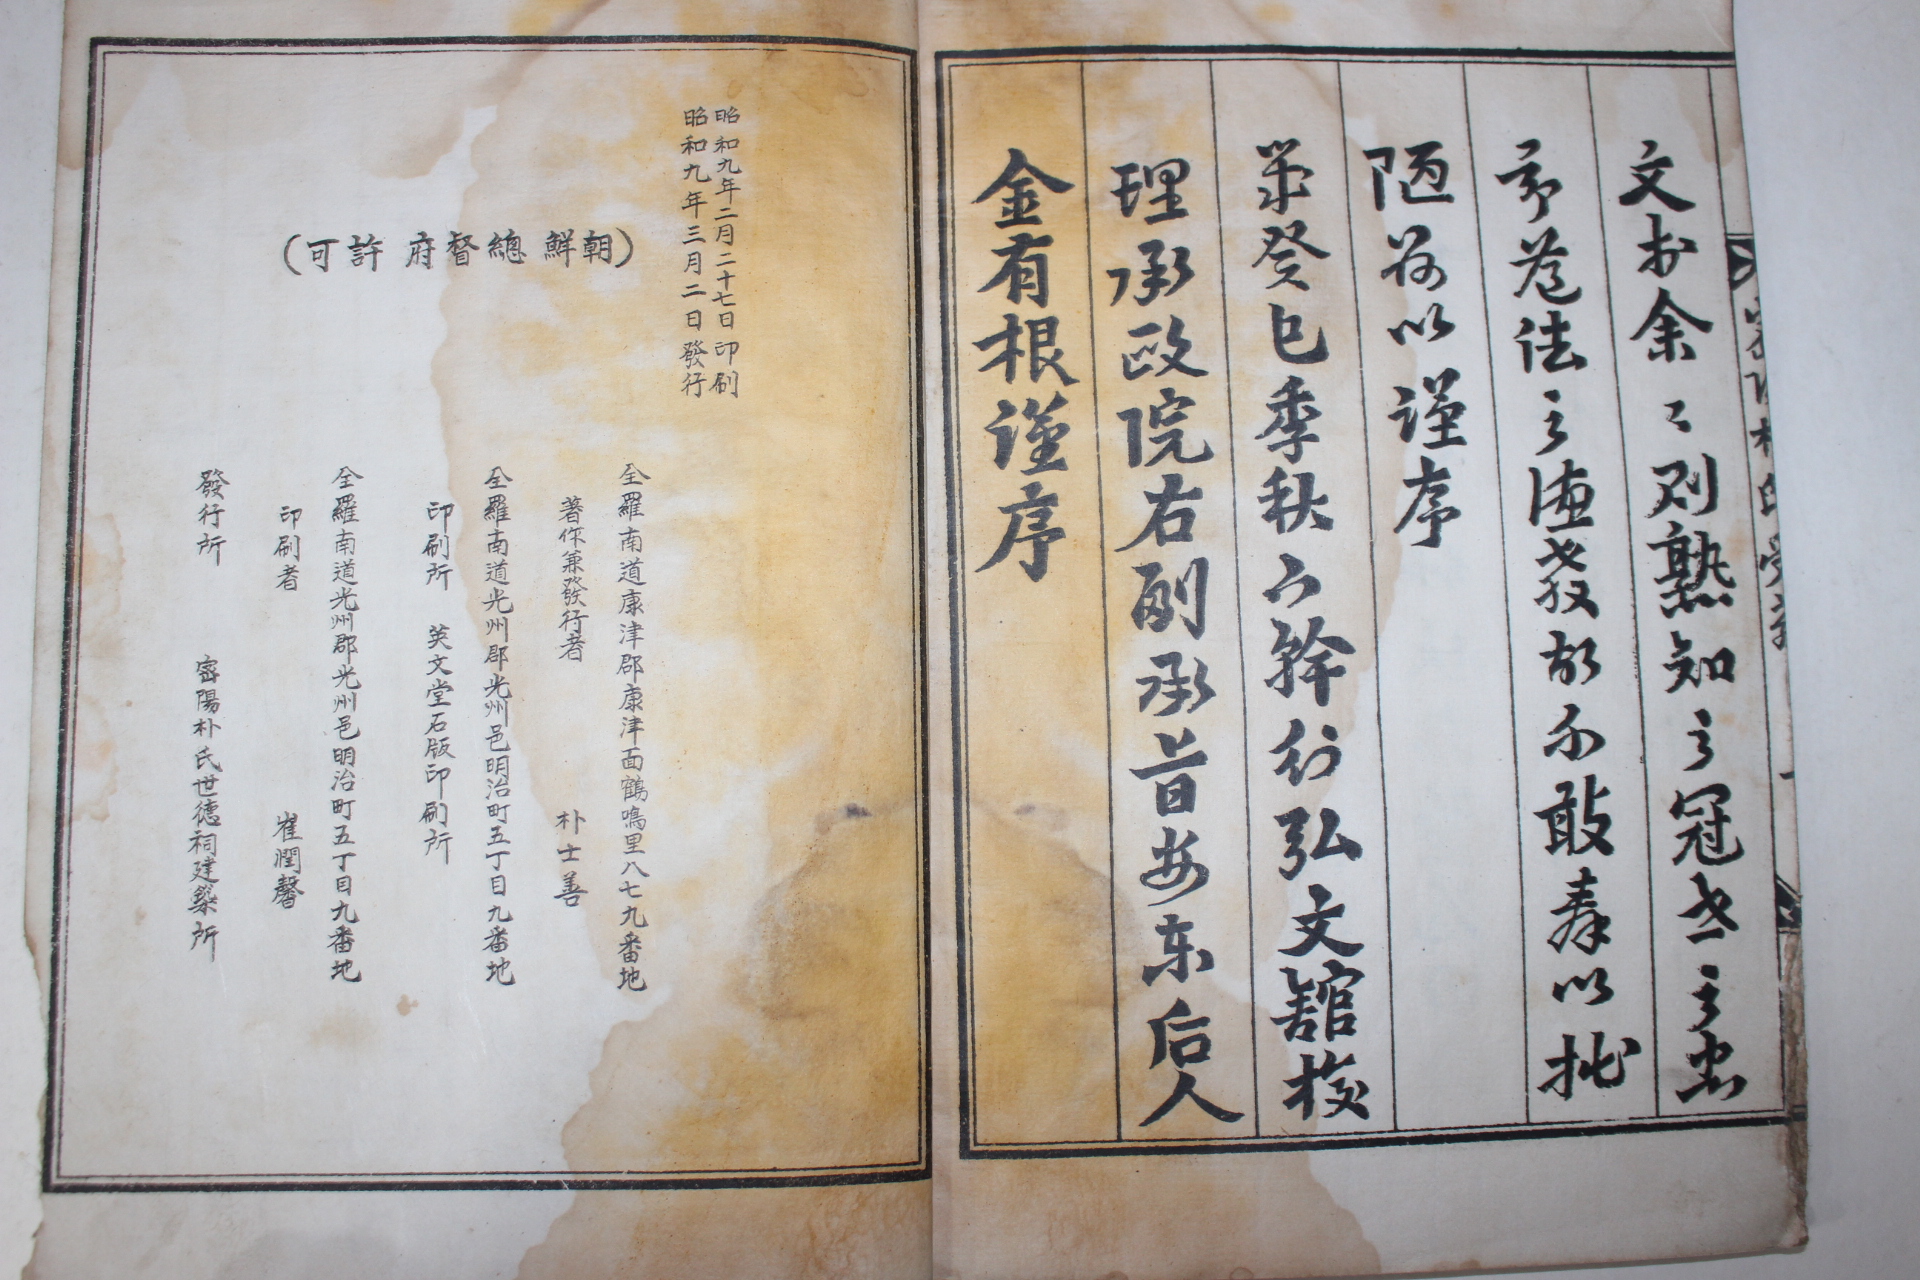 文於余〻則熟知之冠世之忠
所著法之德教故不敢辭以拙
陋略以謹序
癸巳季秋六幹行弘文館校
理承政院右副承旨安东后人
金有根謹序
昭和九年二月二十七日印刷
昭和九年三月二日發行
(朝鮮總督府許可)
全羅南道康津郡康津面鶴鳴里八七九番地
著作兼發行者 朴士善
全羅南道光州郡光州邑明治町五丁目九番地
印刷所 英文堂石版印刷所
全羅南道光州郡光州邑明治町五丁目九番地
印刷者 崔潤馨
發行所 密陽朴氏世德祠建築所